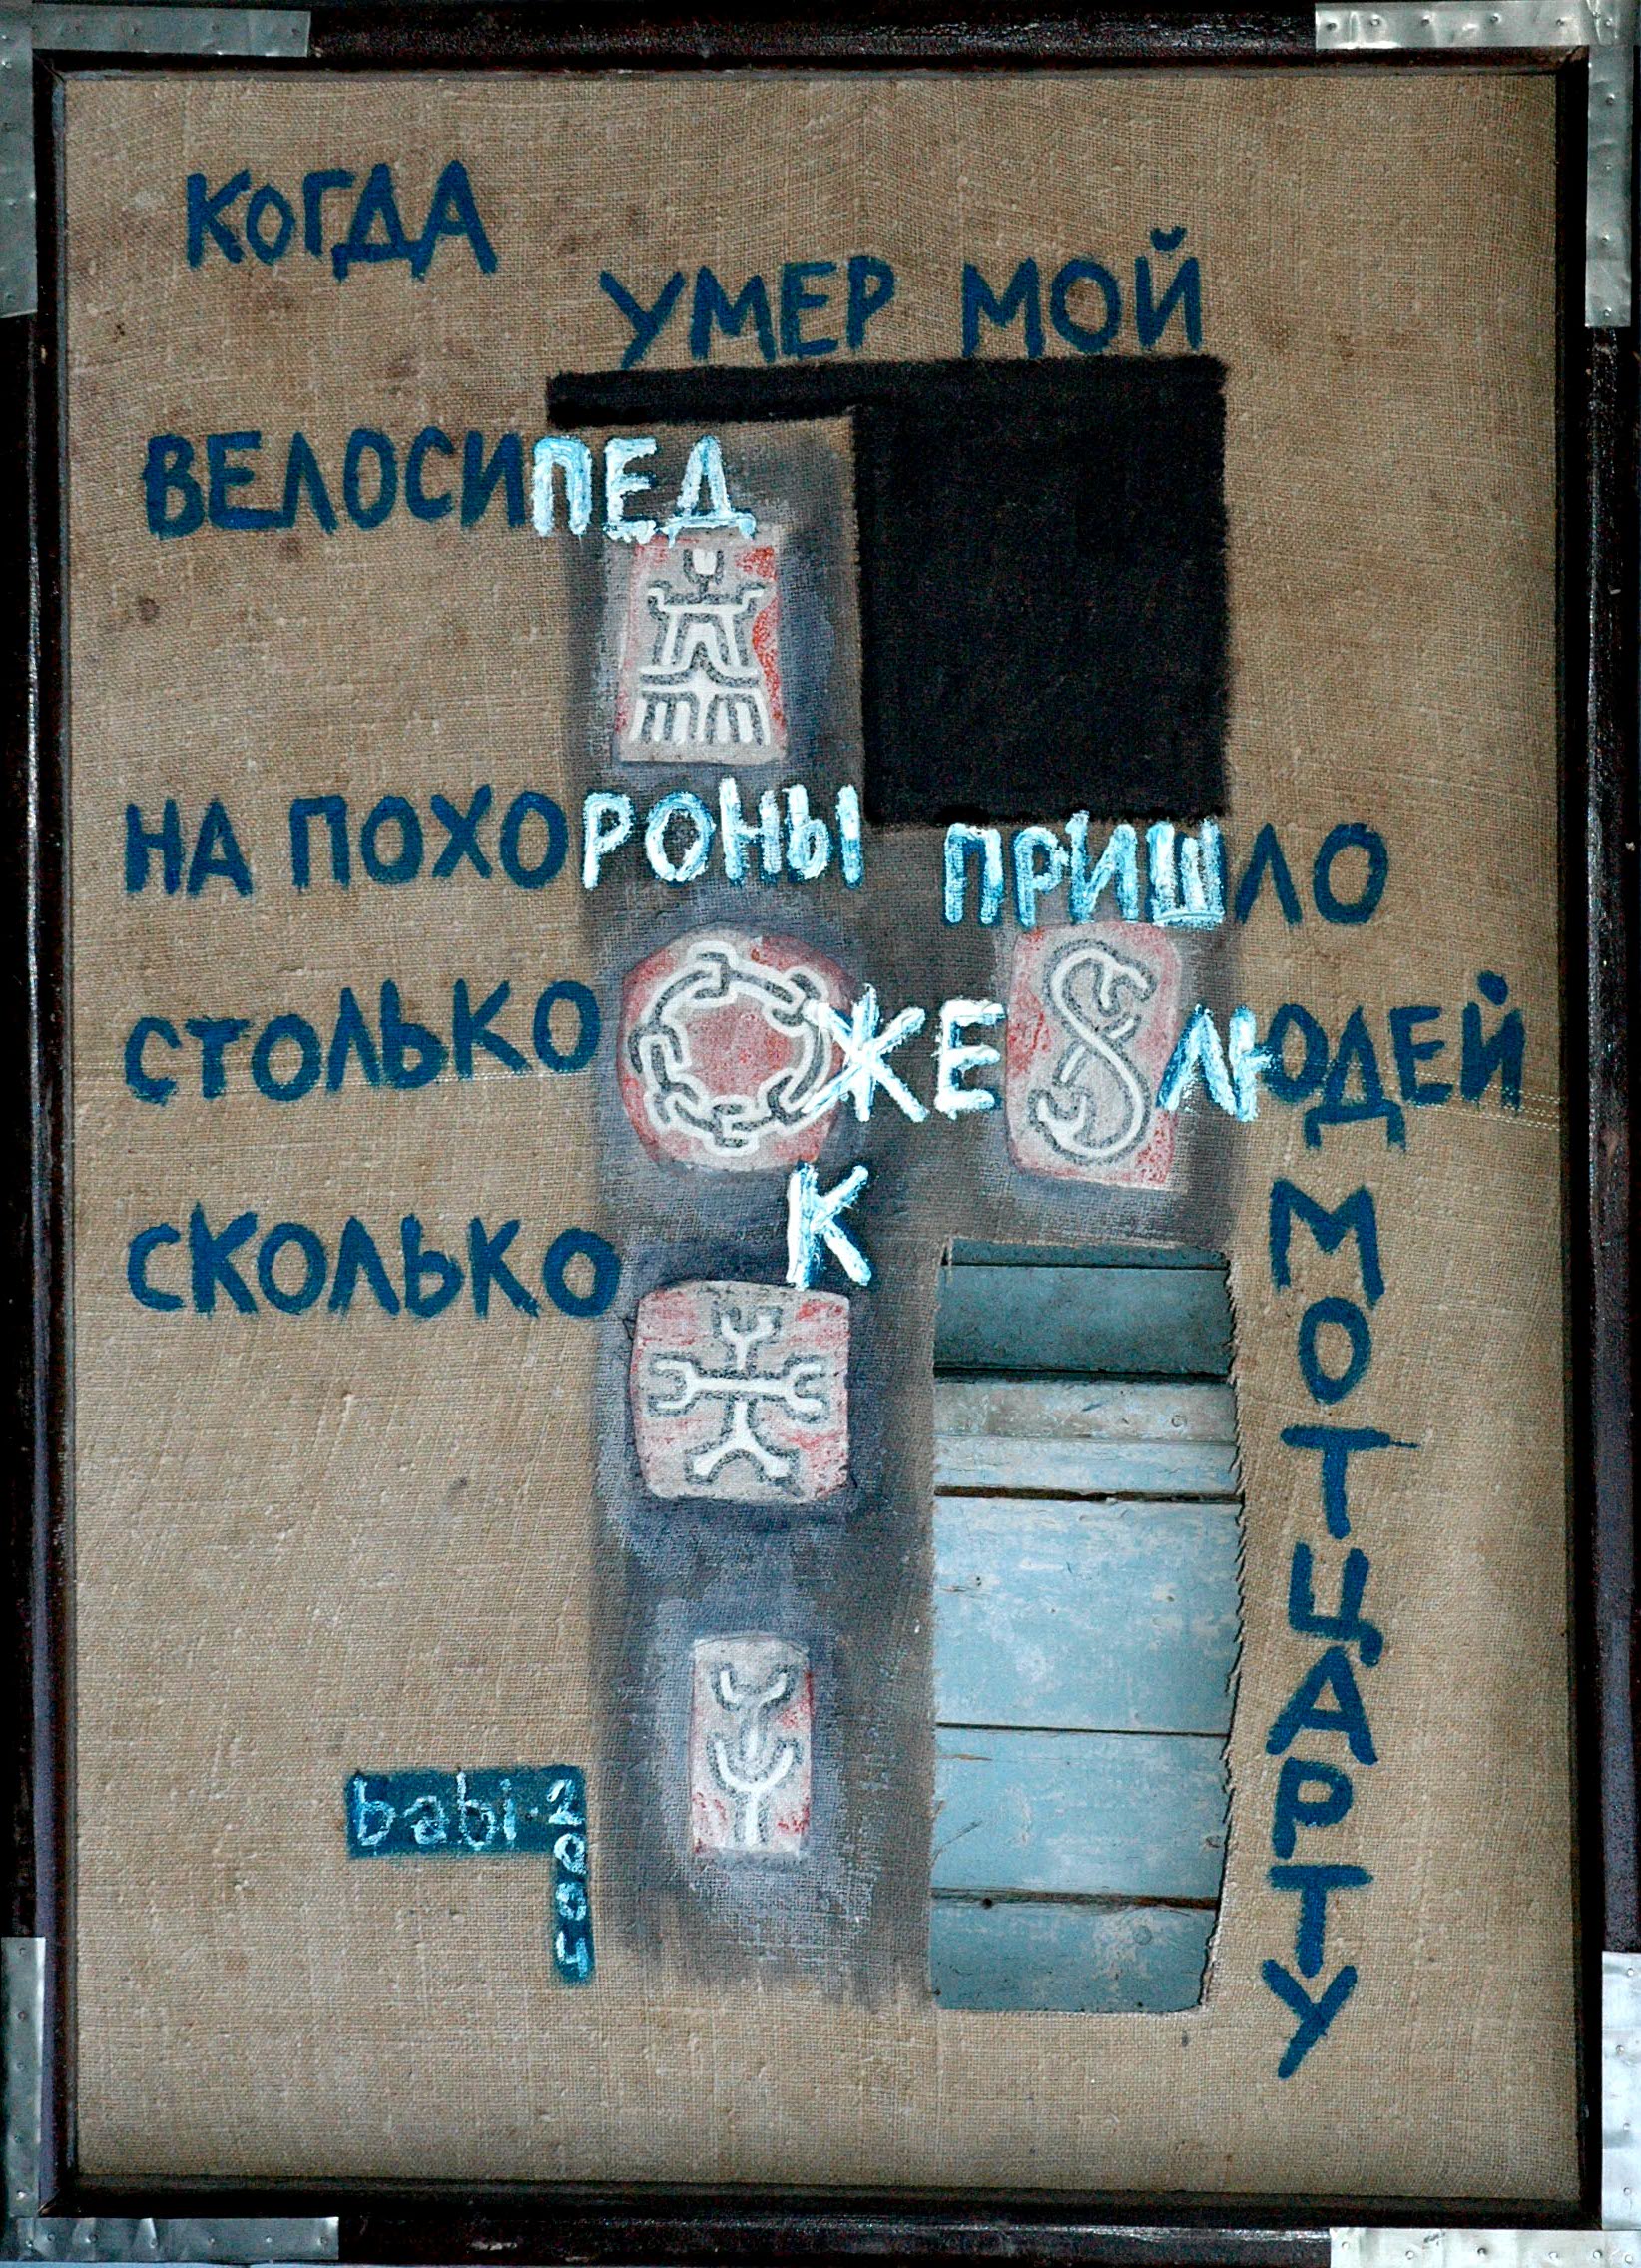 КОГДА
УМЕР МОЙ
ВЕЛОСИПЕД
НА ПОХОРОНЫ ПРИШЛО
СТОЛЬКО ЖЕ ЛЮДЕЙ
СКОЛЬКО К
МОТЦАРТУ
babi-2004